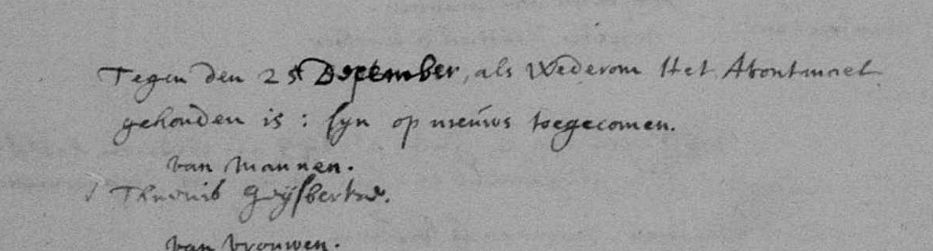 Tegen den 25 December, als Wederom Het Avontmael
gehouden is: syn op nieuws toegecomen.
van Mannen.
Theunis Gysbertse.
van vrouwen.